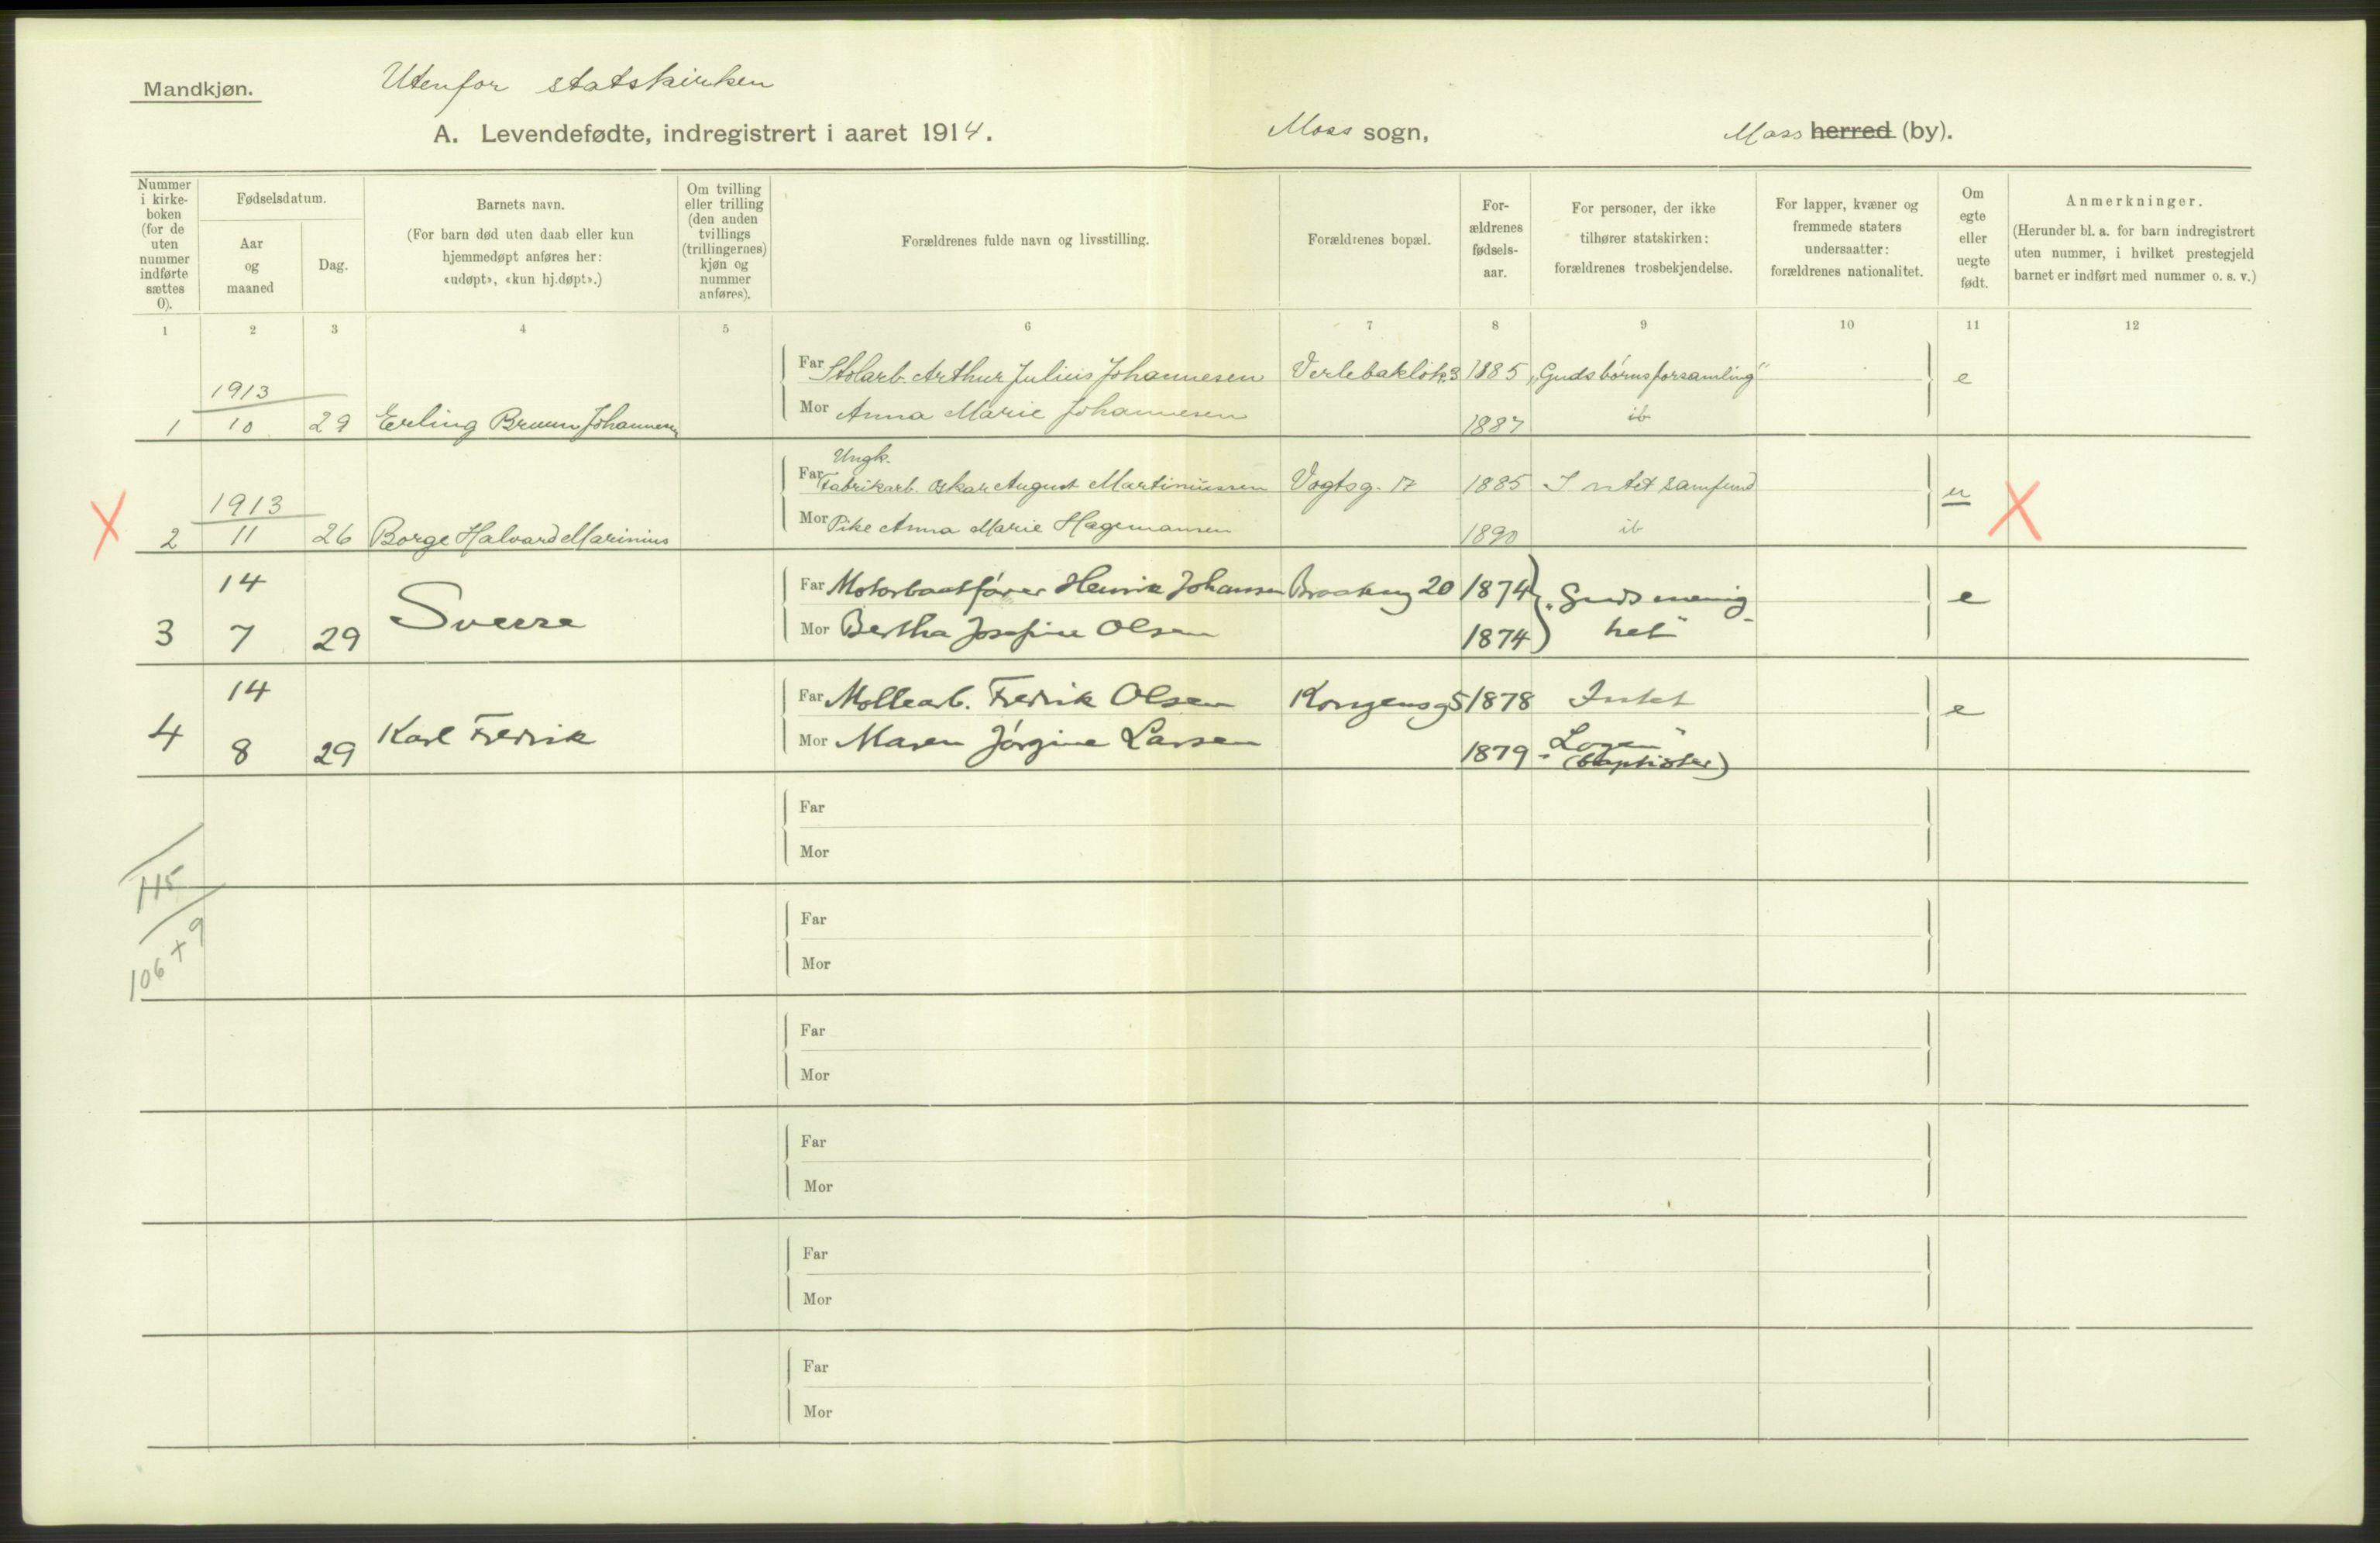 Mandkjøn.
Utenfor statskirken
A. Levendefødte, indregistrert i aaret 1914.
Moss sogn,
Moss herred (by).
Nummer i kirke-boken (for de uten nummer indførte sættes 0).
Fødselsdatum.
Aar og maaned
Dag.
Barnets navn.
(For barn død uten daab eller kun hjemmedøpt anføres her: «udøpt», «kun hj.døpt».)
Om tvilling eller trilling (den anden tvillings (trillingernes) kjøn og nummer anføres).
Forældrenes fulde navn og livsstilling.
Forældrenes bopæl.
For-ældrenes fødsels-aar.
For personer, der ikke tilhører statskirken: forældrenes trosbekjendelse.
For lapper, kvæner og fremmede staters undersaatter: forældrenes nationalitet.
Om egte eller uegte født.
Anmerkninger.
(Herunder bl. a. for barn indregistrert uten nummer, i hvilket prestegjeld barnet er indført med nummer o. s. v.)
1 2 3 4 5 6 7 8 9 10 11 12
1913
Far Stolarb. Arthur Julius Johannesen Verlebakløk. 3 1885 „Guds børns forsamling" e
1 10 29 Erling Bruun Johannesen
Mor Anna Marie Johannesen 1887 ib
Ungk.
1913
Far Fabrikarb. Oskar August Martiniussen Vogtsg. 17 1885 Intet samfund u
X 2 11 26 Borge Halvard Marinius X
Mor Pike Anna Marie Hagemansen 1890 ib
14
Far Motorbaatfører Henrik Johansen 20 1874 „Guds menig- e
3 7 29 Sverre
Mor Bertha Josefine Olsen 1874 het"
14
Far Møllearb. Fredrik Olsen Kongensg 5 1878 Intet e
4 8 29 Karl Fredrik
Mor Maren Jørgine Larsen 1879 „Logen"
(baptister)
Far
Mor
115
Far
106 + 9
Mor
Far
Mor
Far
Mor
Far
Mor
Far
Mor